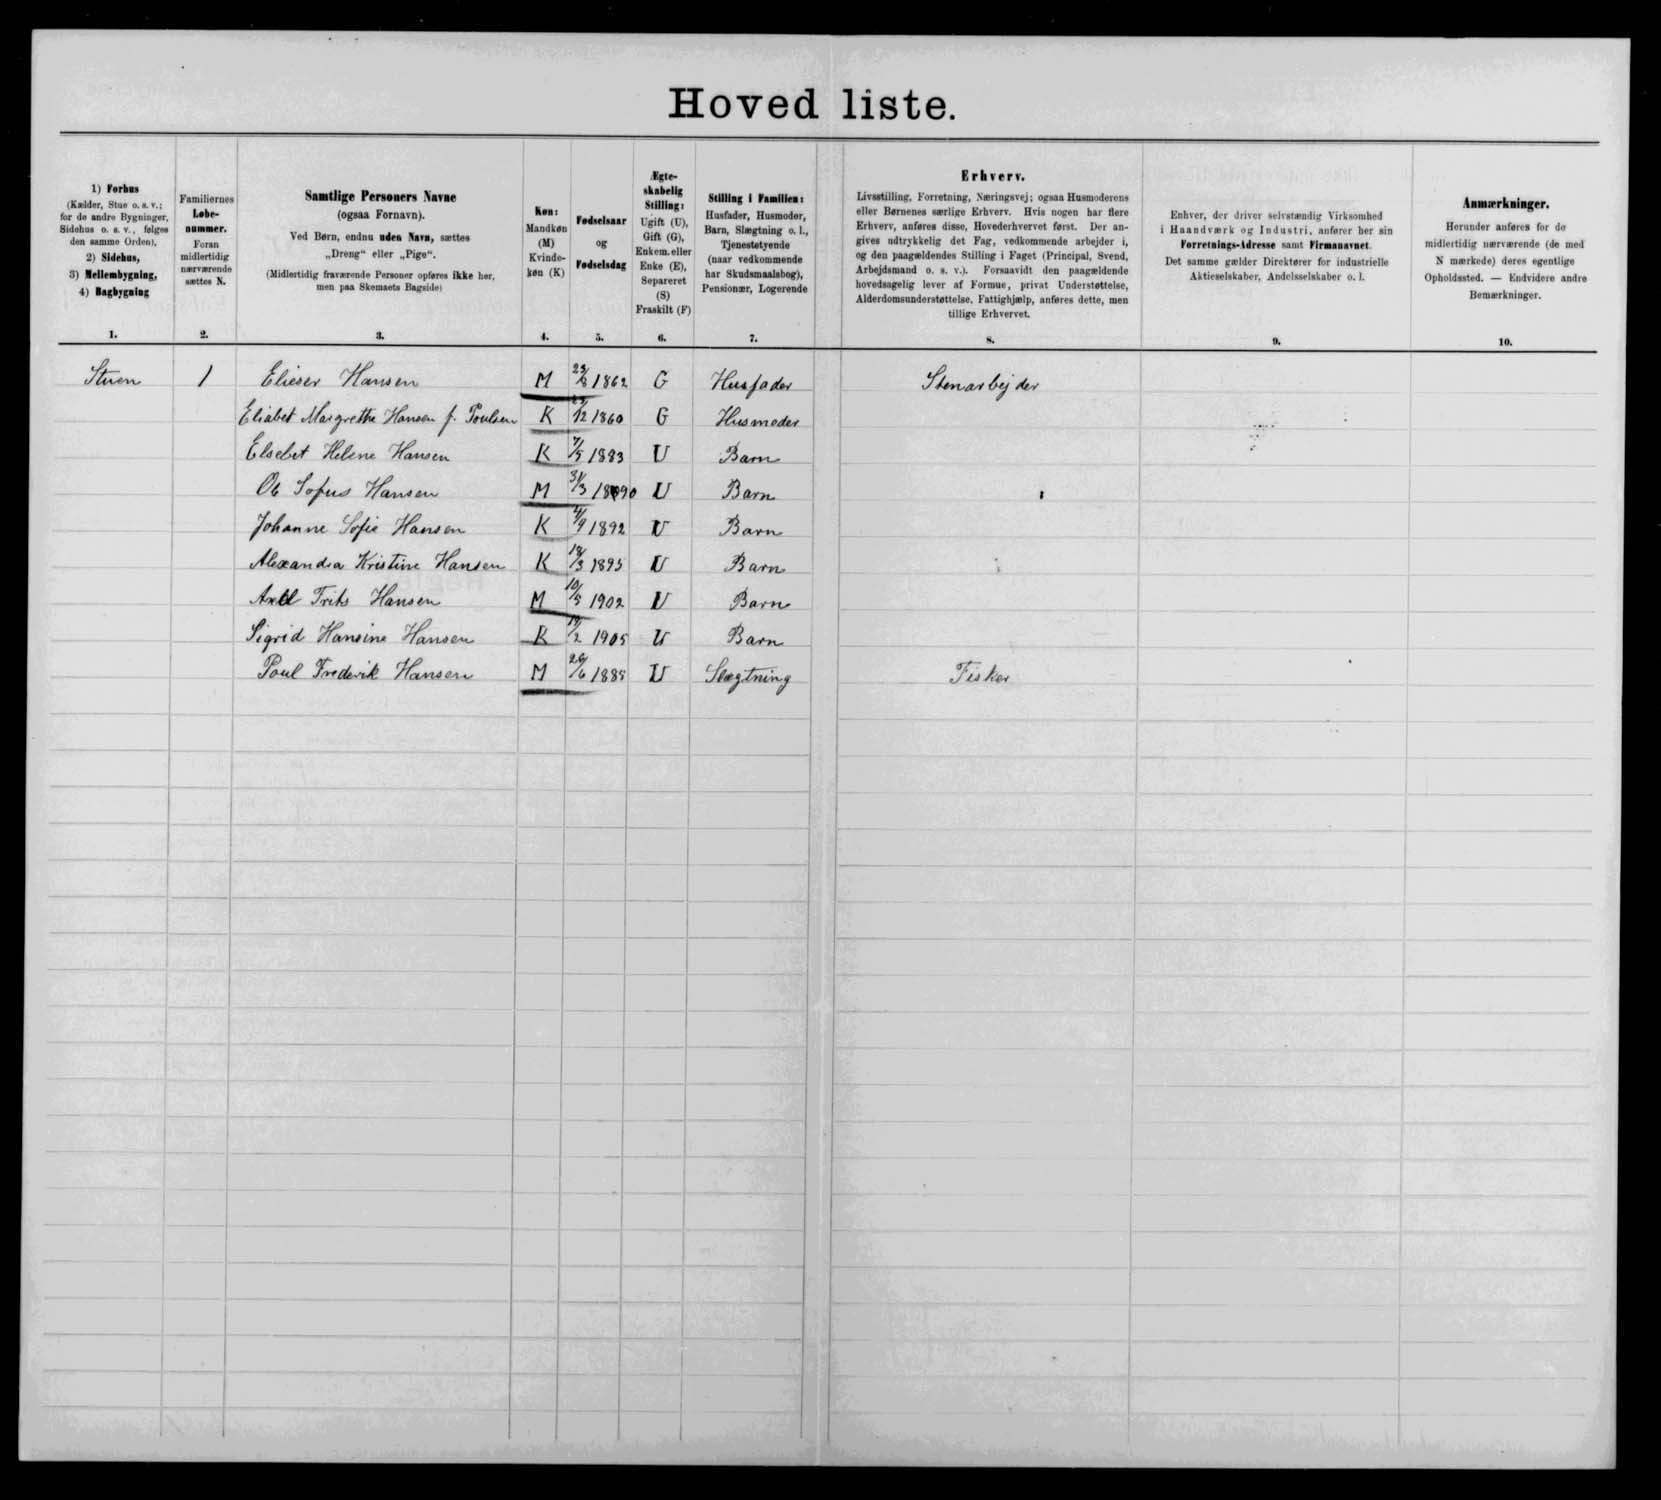 Hovedliste.
1) Forhus
(Kælder, Stue o. s. v.;
for de andre Bygninger,
Sidehus o. s. v., følges
den samme Orden),
2) Sidehus,
3) Mellembygning,
4) Bagbygning
1.
Familiernes
Løbe-
nummer.
Foran
midlertidig
nærværende
sættes N.
2.
Samtlige Personers Navne
(ogsaa Fornavn).
Ved Børn, endnu uden Navn, sættes
„Dreng“ eller „Pige“.
(Midlertidig fraværende Personer opføres ikke her,
men paa Skemaets Bagside)
3.
Køn:
Mandkøn
(M)
Kvinde-
køn (K)
4.
Fødselsaar
og
Fødselsdag
5.
Ægte-
skabelig
Stilling:
Ugift (U),
Gift (G),
Enkem. eller
Enke (E),
Separeret
(S)
Fraskilt (F)
6.
Stilling i Familien:
Husfader, Husmoder,
Barn, Slægtning o. l.,
Tjenestetyende
(naar vedkommende
har Skudsmaalsbog),
Pensionær, Logerende
7.
Erhverv.
Livsstilling, Forretning, Næringsvej; ogsaa Husmoderens
eller Børnenes særlige Erhverv. Hvis nogen har flere
Erhverv, anføres disse, Hovederhvervet først. Der an-
gives udtrykkelig det Fag, vedkommende arbejder i,
og den paagældendes Stilling i Faget (Principal, Svend,
Arbejdsmand o. s. v.). Forsaavidt den paagældende
hovedsagelig lever af Formue, privat Understøttelse,
Alderdomsunderstøttelse, Fattighjælp, anføres dette, men
tillige Erhvervet.
8.
Enhver, der driver selvstændig Virksomhed
i Haandværk og Industri, anfører her sin
Forretnings-Adresse samt Firmanavnet.
Det samme gælder Direktører for industrielle
Aktieselskaber, Andelsselskaber o. l.
9.
Anmærkninger.
Herunder anføres for de
midlertidig nærværende (de med
N mærkede) deres egentlige
Opholdssted. — Endvidere andre
Bemærkninger.
10.
Stuen 1 Elieser Hansen M 23/8 1862 G Husfader Stenarbejder
Eliabet Margrethe Hansen f. Poulsen K /12 1860 G Husmoder
Elsebet Helene Hansen K 7/5 1883 U Barn
Ole Sofus Hansen M 31/3 1890 U Barn
Johanne Sofie Hansen K 4/9 1892 U Barn
Alexandra Kristine Hansen K 18/3 1895 U Barn
Axel Frits Hansen M 10/5 1902 U Barn
Sigrid Hansine Hansen K 19/2 1905 U Barn
Poul Frederik Hansen M 26/6 1885 U Slægtning Fisker